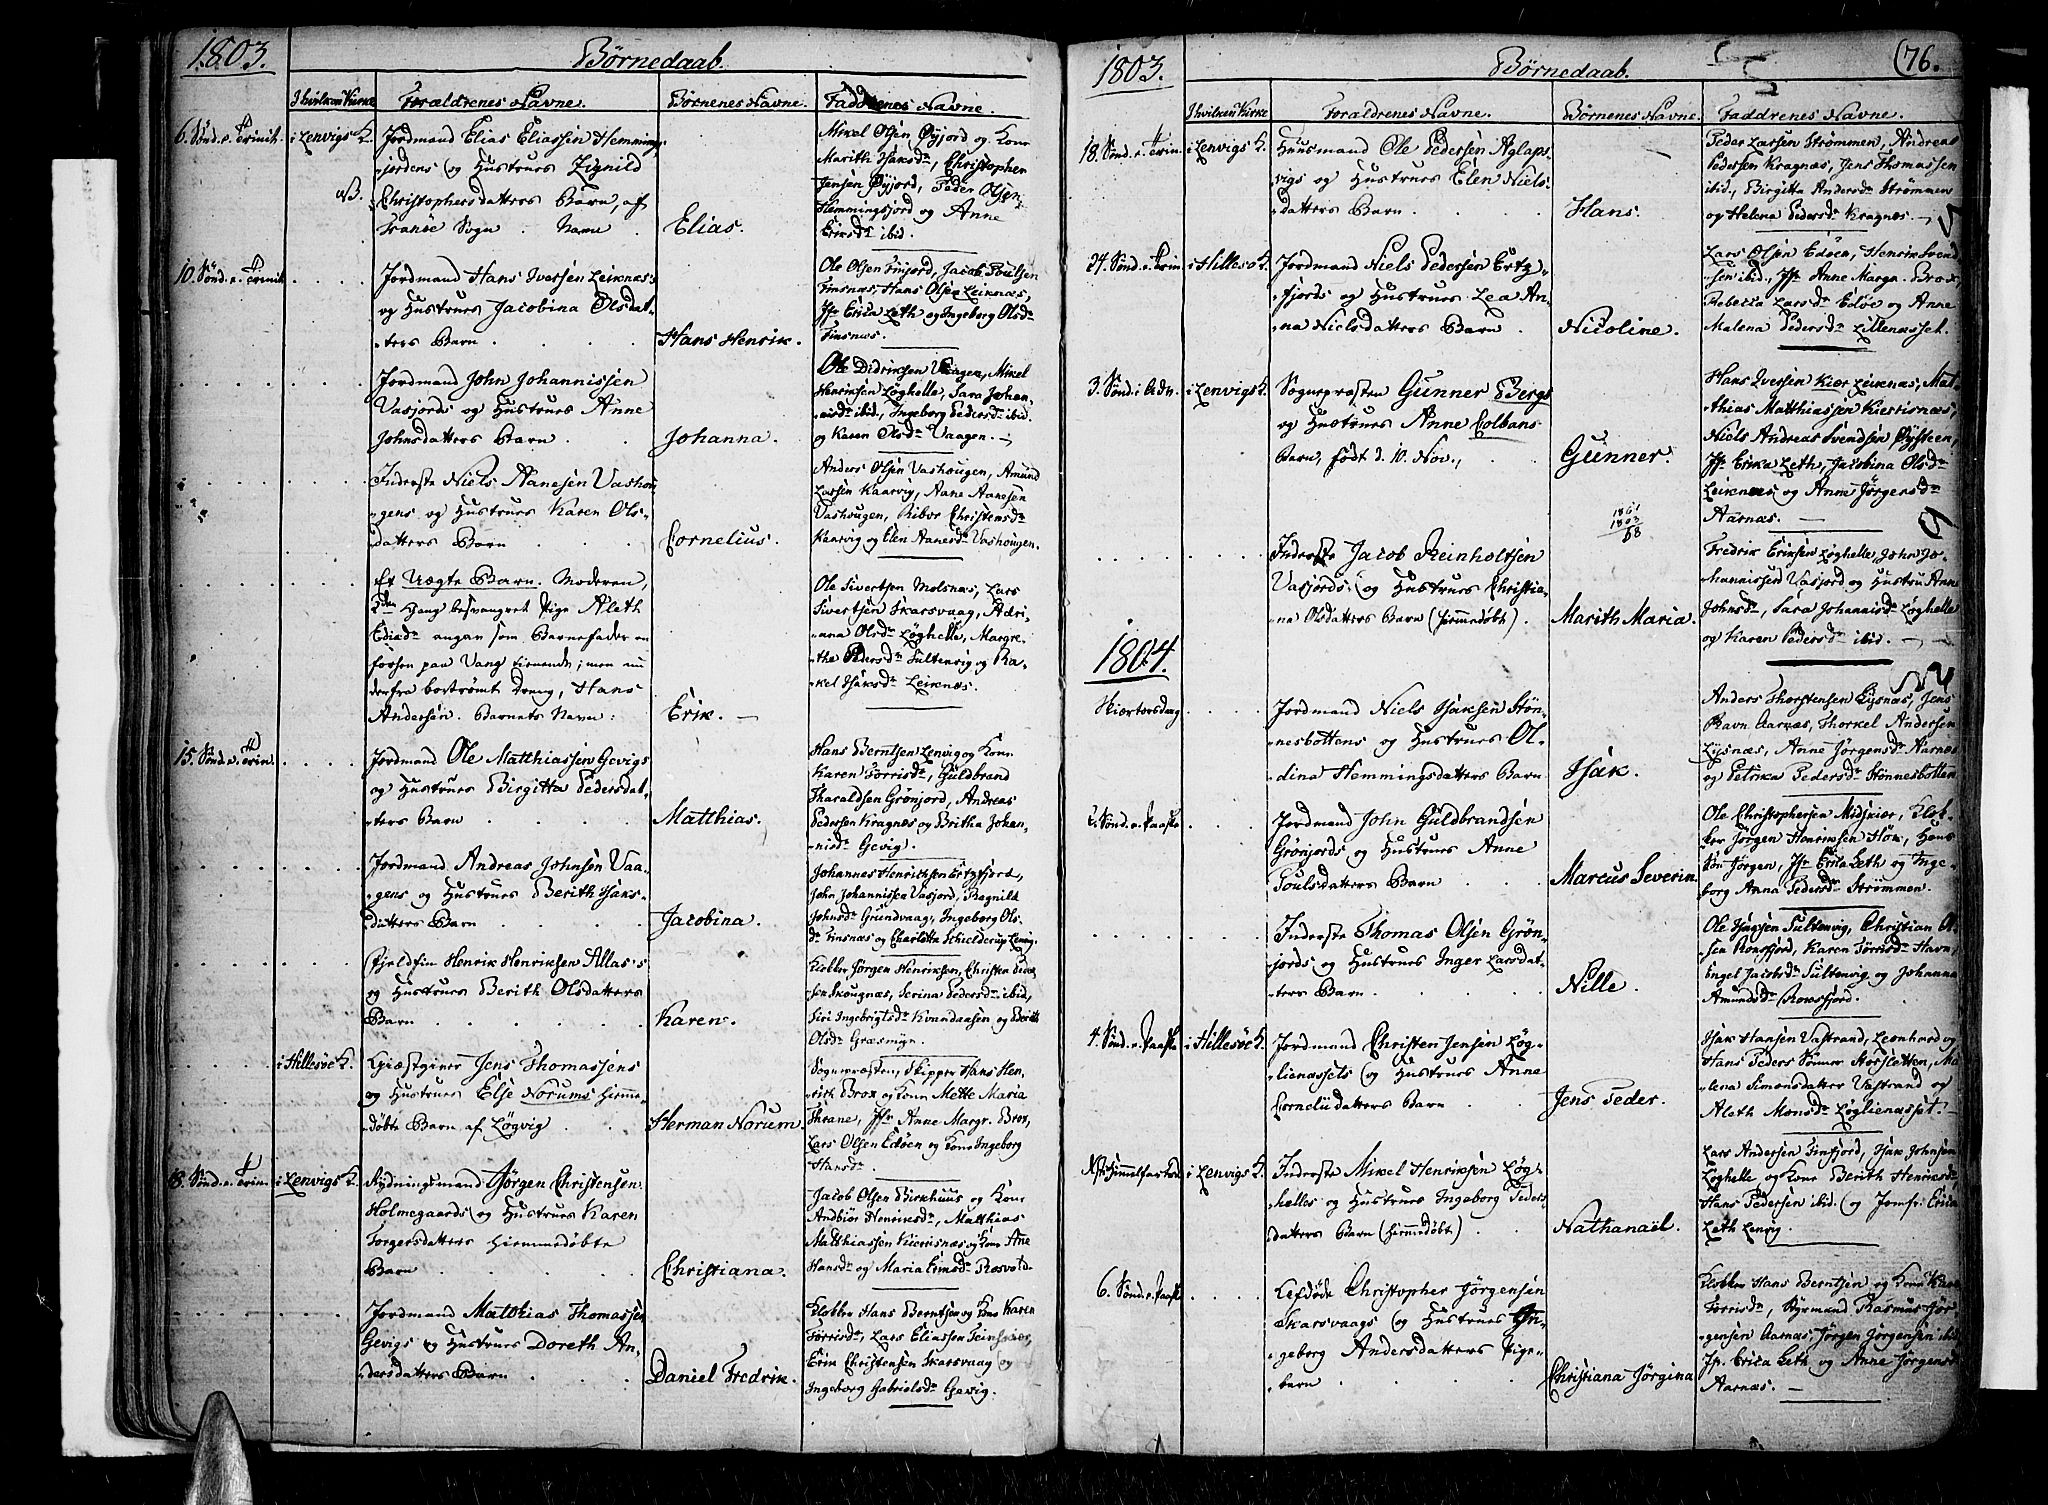 1803.
Børnedaab.
I hvilken Kirke
Forældrenes Navne.
Børnenes Navne.
Faddrenes Navne.
6. Sønd. e. Trinit.
i Lenvigs K.
Jordmand Elias Eliassen Hemming-
fjordens og Hustrues
NB.
Christophersdatters Barn, af
Tranöe Sogn. Navn
Elias.
Mikel Olsen Øyjord og Kone
Marith Isaksdr, Christopher
Jensen Øyjord, Peder Olsen
Hemmingsfjord og Anne
Eriksdr ibid.
10. Sønd. e. Trinit.
Jordmand Hans Iversen Leiknæs
og Hustrues Jacobina Olsdat-
ters Barn
Hans Henrik.
Ole Olsen Finfjord, Jacob Poulsen
Finsnæs, Hans Olsen Leiknæs,
Jfr Erica Leth og Ingeborg Olsdr
Finsnæs.
Jordmand John Johannissen
Vasjords og Hustrues Anne
Johnsdatters Barn
Johanna.
Ole Didriksen Vaagen, Mikel
Henriksen Løghelle, Sara Johan-
nisdr ibid., Ingeborg Pedersdr ibid.
og Karen Olsdr Vaagen.
Inderste Niels Aanesen Vashou-
gens og Hustrues Karen Ols-
datters Barn
Cornelius.
Anders Olsen Vashougen, Amund
Larsen Kaarvig, Aane Aanesen
Vashougen, Ribor Christensdr
Kaarvig og Elen Aanesdr Vashougen.
Et Uægte Barn. Moderen,
2den Gang besvangret Pige Aleth
angav som Barnefader en
forhen paa Vang tienende, men nu
derfra bortrømt Dreng, Hans
Andersen. Barnets Navn:
Erik.
Ole Sivertsen Molsnæs, Lars
Sivertsen Skarsvaag, Adri-
ana Olsdr Løghelle, Margre-
the Pedersdr Sultenvig og Ra-
kel Isaksdr Leiknæs.
15. Sønd. e. Trin.
Jordmand Ole Matthiassen Gevigs
og Hustrues Birgitta Pedersdat-
ters Barn
Matthias.
Hans Berntsen Lenvig og Kone
Karen Torrisdr, Guldbrand
Tharaldsen Grönjord, Andreas
Pedersen Kragnæs og Britha Johan-
nisdr Gevig.
Jordmand Andreas Johnsen Vaa-
gens og Hustrues Berith Isaks-
datters Barn
Jacobina.
Johannes Henriksen Ertzfjord,
John Johannissen Vasjord, Ragnild
Johnsdr Grundvaag, Ingeborg Ols-
dr Finsnæs og Charlotta Schielderup Lenvig.
Fjeldfin Henrik Henriksen Allas's
og Hustrues Berith Olsdatters
Barn
Karen.
Klokker Jørgen Henriksen, Christen Peder-
sen Skougnæs, Serina Pedersdr ibid,
Siri Ingebrigtsdr Kvandaasen og Berith
Olsdr Græsmyr.
i Hillesøe K.
Giæstgiver Jens Thomassens
og Hustrues Else Norums hiemme-
døbte Barn af Løgvig
Herman Norum.
Sognepræsten, Skipper Hans Hen-
rik Brox og Kone Mette Maria
Thrane, Jfr Anne Margr. Brox,
Lars Olsen Edöen og Kone Ingeborg
Hansdr.
18. Sønd. e. Trin.
i Lenvigs K.
Rydningsmand Jørgen Christensen
Holmegaards og Hustrues Karen
Torgersdatters hiemmedøbte
Barn
Christiana.
Jacob Olsen Birkhuus og Kone
Andbiör Henriksdr, Matthias
Matthiassen Kierrisnæs og Kone Ane
Hansdr og Maria Eriksdr Rosvold.
Jordmand Matthias Thomassen
Gevigs og Hustrues Doreth An-
dersdatters Barn
Daniel Fredrik.
Klokker Hans Berntsen og Kone Karen
Torrisdr, Lars Eliassen
Erik Christensen Skarsvaag og
Ingeborg Gabrielsdr Gevig.
1803.
Børnedaab.
(76.
I hvilken Kirke
Forældrenes Navne.
Børnenes Navne.
Faddrenes Navne.
18. Sønd. e. Trin.
i Lenvigs K.
Huusmand Ole Pedersen Aglaps-
vigs og Hustrues Elen Niels-
datters Barn
Hans.
Peder Larsen Strømmen, Andreas
Pedersen Kragnæs, Jens Thomassen
ibid., Birgitta Andersdr Strömmen
og Helena Pedersdr Kragnæs.
24. Sønd. e. Trin.
i Hillesø K.
Jordmand Niels Pedersen Ertz-
fjords og Hustrues Lea An-
na Nielsdatters Barn
Nicoline.
Lars Olsen Edöen, Henrik Svend-
sen ibid., Jfr Anne Margr. Brox,
Rebecca Larsdr Edöe og Anne
Malena Pedersdr
3. Sønd. i Adv.
i Lenvigs K.
Sognepræsten Gunner Bergs
og Hustrues Anne Colbans
Barn, født d. 10. Nov.,
Gunner.
1861
1803
58
Hans Iversen Kiær Leiknæs, Mat-
thias Matthiassen Kierrisnæs,
Niels Andreas Svendsen Øysteen,
Jfr Erika Leth, Jacobina Olsdr
Leiknæs og Anne Jørgensdr
Aarnæs.
Inderste Jacob Reinholtsen
Vasjords og Hustrues Christia-
na Olsdatters Barn (hiemmedøbt).
Marith Maria.
Fredrik Eriksen Løghelle, John Jo-
hannissen Vasjord og Hustru Anne
Johnsdr, Sara Johannisdr Løghelle
og Karen Pedersdr ibid.
1804.
Skiærtorsdag
Jordmand Niels Isaksen Stön-
nesbottens og Hustrues Ol-
dina Hemmingsdatters Barn
Isak.
Anders Thorstensen Lysnæs, Jens
Ravn Aarnæs, Thorkel Andersen
Lysnæs, Anne Jørgensdr Aarnæs
og Petrika Pedersdr Stønnesbotten
2. Sønd. e. Paaske
Jordmand John Guldbrandsen
Grönjords og Hustrues Anne
Poulsdatters Barn
Marcus Severin.
Ole Christophersen Midskiær, Klok-
ker Jörgen Henriksen Höe, Hans
Søn Jörgen, Jfr Erica Leth og Inge-
borg Anna Pedersdr Strømmen.
Inderste Thomas Olsen Grøn-
jords og Hustrues Inger Larsdat-
ters Barn
Nille.
Ole Isaksen Sultenvig, Christian Ol-
sen Rossfjord, Karen Torrisdr Havn,
Engel Jacobsdr Sultenvig og Johanna
Amundsdr Rossfjord.
4. Sønd. e. Paaske
i Hillesöe K.
Jordmand Christen Jensen Løg-
lienæssets og Hustrues Anne
Cornelüdatters Barn
Jens Peder.
Isak Hansen Vastrand, Leonhard og
Hans Peders Sönner Storslætten, Ma-
lena Simonsdatter Vastrand og
Aleth Monsdr Løglienæsset.
i Lenvigs K.
Inderste Mikel Henriksen Løg-
helles og Hustrues Ingeborg Peders-
datters Barn (hiemmedøbt)
Nathanaël.
Lars Andersen Finfjord, Isak Johnsen
Løghelle og Kone Berith Henriksdr
Hans Pedersen ibid. og Jomfr. Erica
Leth Lenvig
6. Sønd. e. Paaske
Christopher Jørgensen
Skarsvaags og Hustrues In-
geborg Andersdatters Pige-
barn
Christiana Jörgina
Klokker Hans Berntsen og Kone Karen
Torrisdr, Rasmus Jør-
gensen Aarnæs, Jørgen Jørgensen ibid
Jfr Erica Leth og Anne Jörgensdr
Aarnæs.